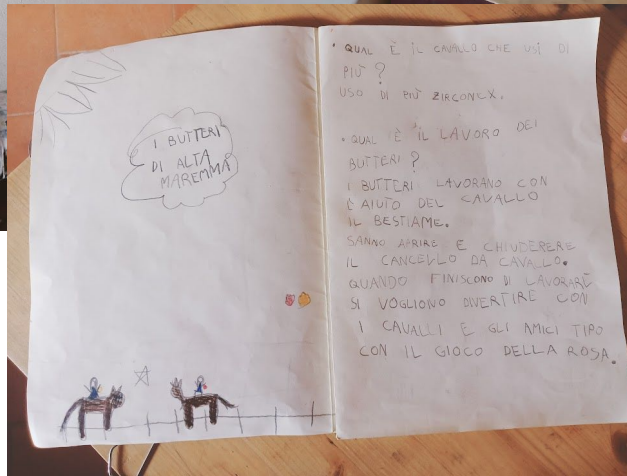 I BUTTERI
DI ALTA
MAREMMA
• QUAL È IL CAVALLO CHE USI DI
PIÙ ?
USO DI PIÙ ZIRCONEX.
• QUAL È IL LAVORO DEI
BUTTERI ?
I BUTTERI LAVORANO CON
L'AIUTO DEL CAVALLO
IL BESTIAME.
SANNO APRIRE E CHIUDERERE
IL CANCELLO DA CAVALLO.
QUANDO FINISCONO DI LAVORARE
SI VOGLIONO DIVERTIRE CON
I CAVALLI E GLI AMICI TIPO
CON IL GIOCO DELLA ROSA.